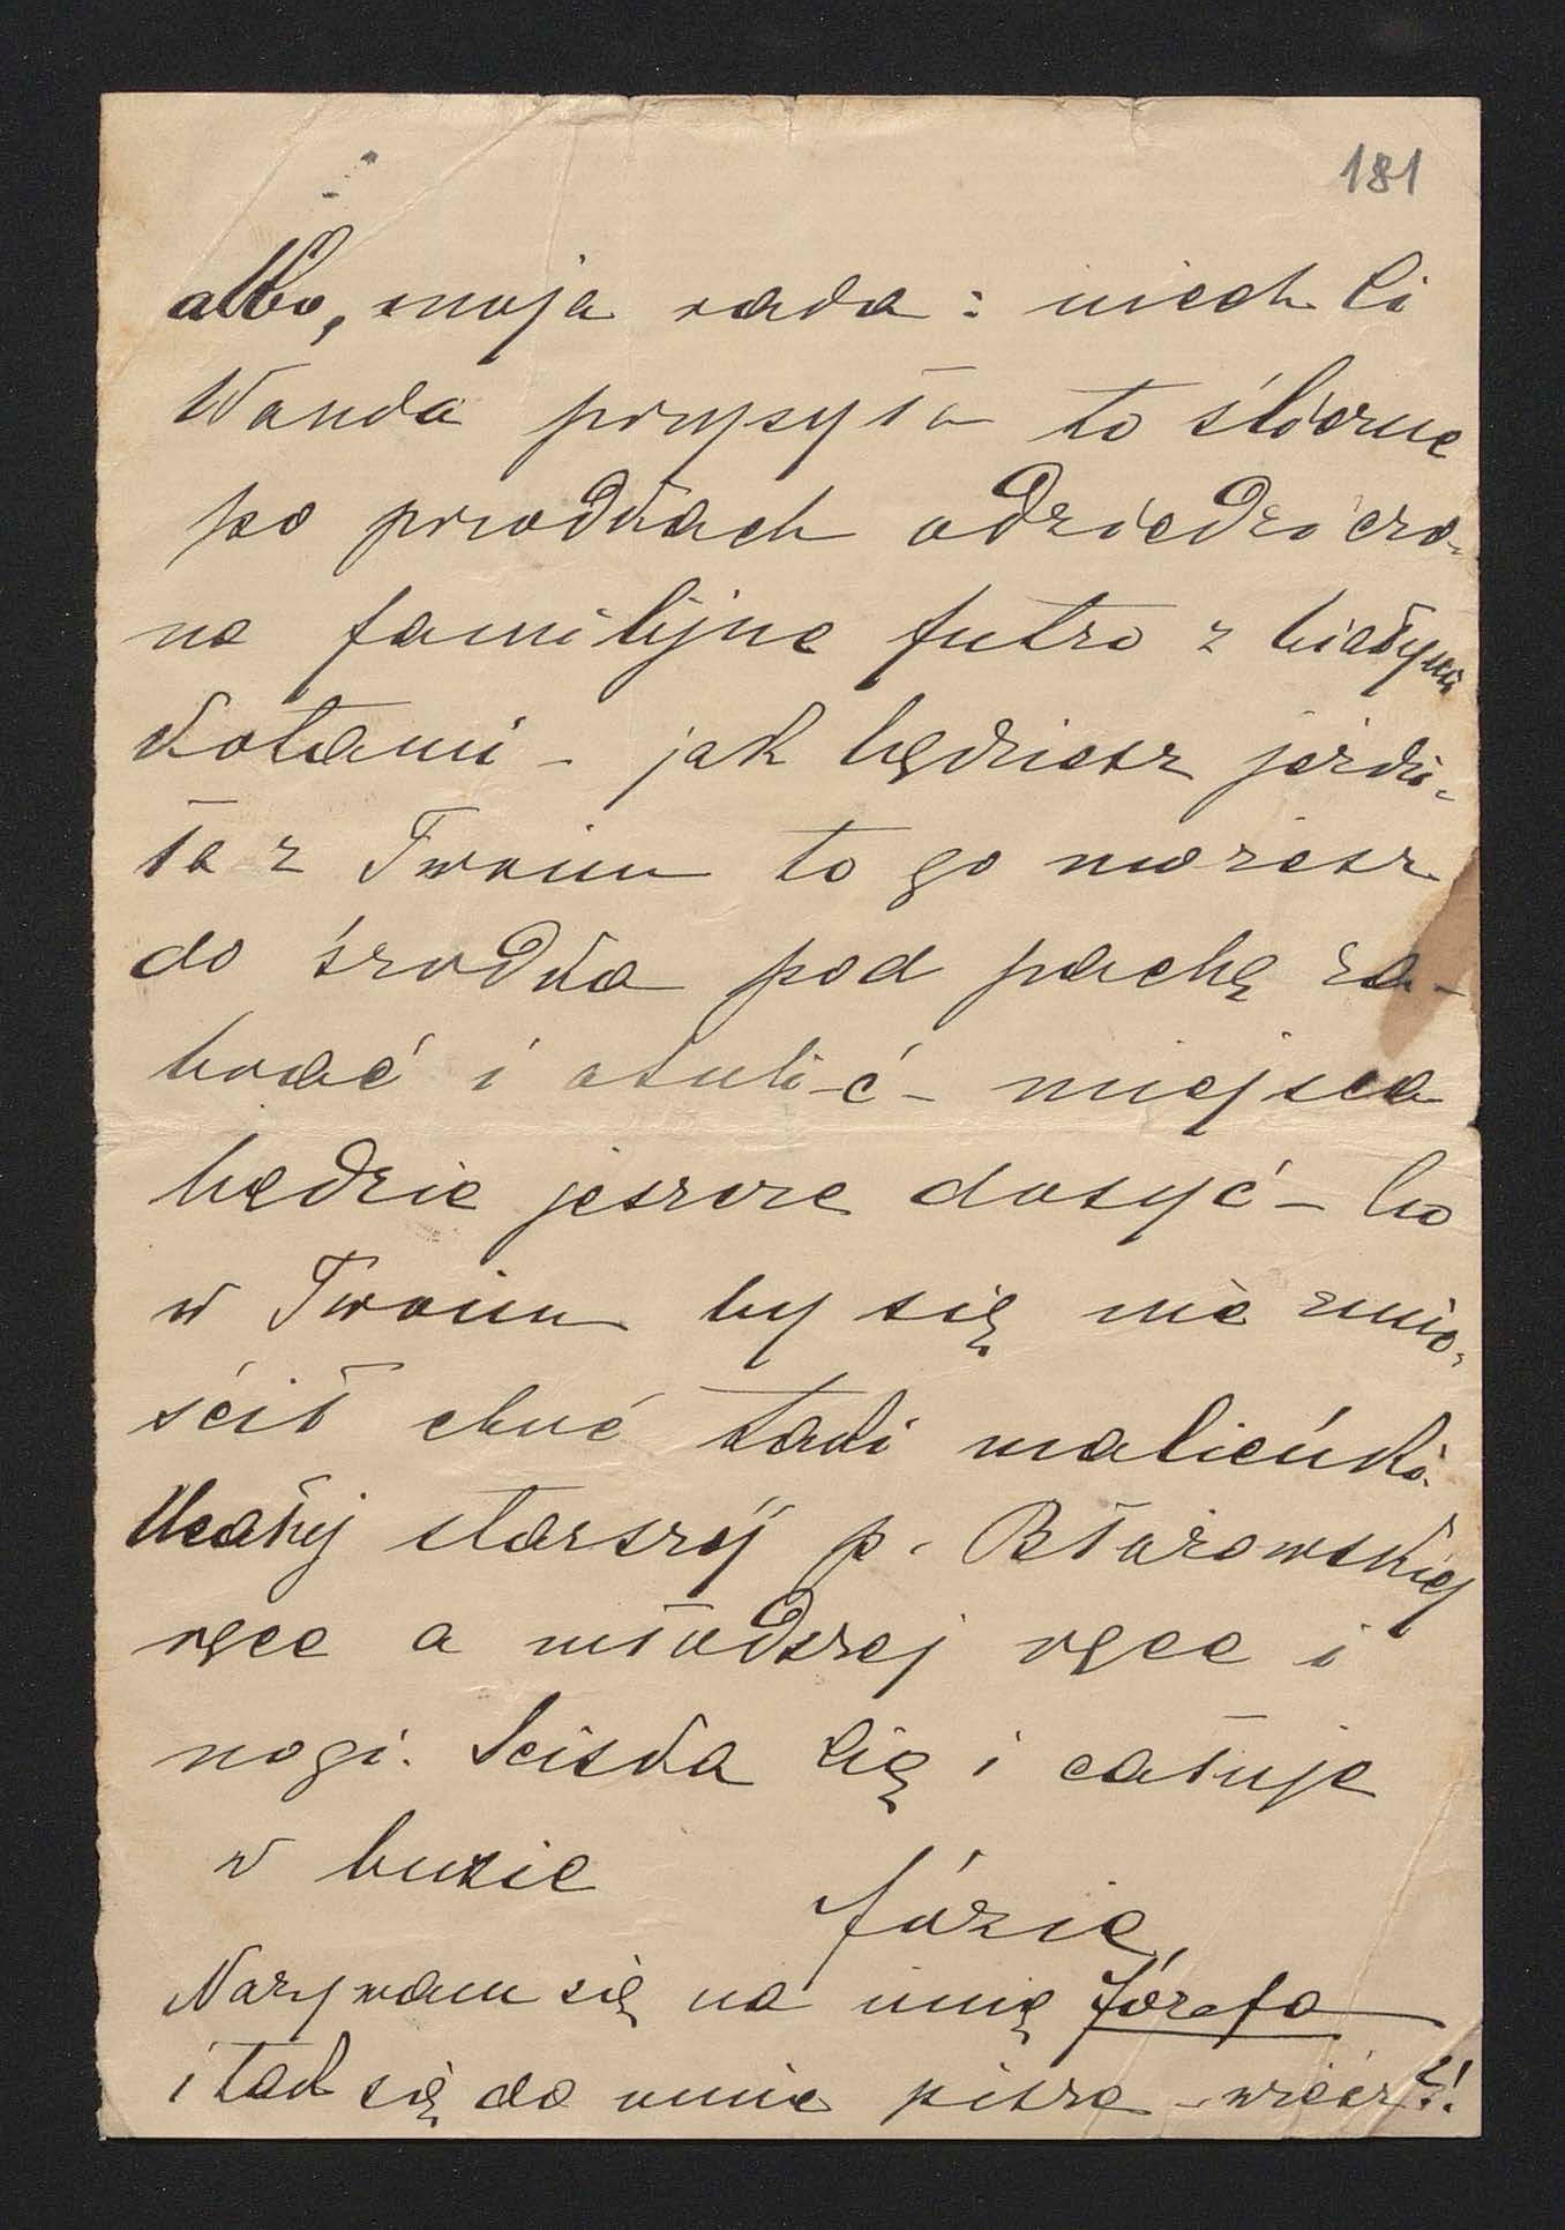 181
albo, moja rada: niech Ci
Wanda przysyła to śliczne
po przodkach odziedziczo-
ne familijne futro z białymi
kotami – jak będziesz jeździ-
ła z Twoim to go możesz
do środka pod pachę za-
brać i otulić – miejsca
będzie jeszcze dosyć – bo
w Twoim by się nie zmie-
ścił choć taki malieńki.
Ucałuj starszej p. Błażowskiej
ręce a młodszej ręce i
nogi. Ściska Cię i całuje
w buzie
Józia,
Nazywam się na imię Józefa
i tak się do mnie pisze – wiesz?!